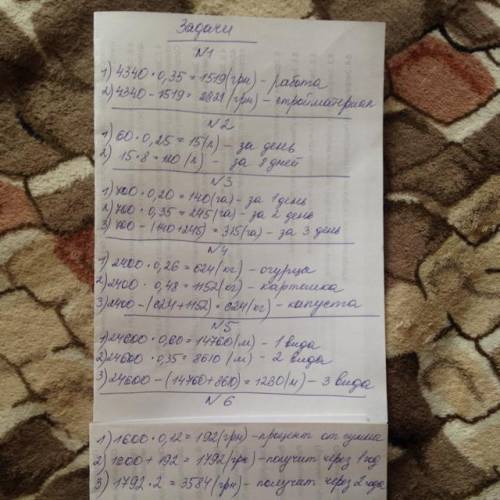 Задачи
N1
1) 4340 · 0,35 = 1519 (грн) - работа
2) 4340 - 1519 = 2821 (грн) - стройматериал
N2
1) 60 · 0,25 = 15 (л) - за день
2) 15 · 8 = 120 (л) - за 8 дней
N3
1) 700 · 0,20 = 140 (га) - за 1 день
2) 700 · 0,35 = 245 (га) - за 2 день
3) 700 - (140 + 245) = 315 (га) - за 3 день
N4
1) 2400 · 0,26 = 624 (кг) - огурцы
2) 2400 · 0,48 = 1152 (кг) - картошка
3) 2400 - (624 + 1152) = 624 (кг) - капуста
N5
1) 24600 · 0,60 = 14760 (м) - 1 вида
2) 24600 · 0,35 = 8610 (м) - 2 вида
3) 24600 - (14760 + 8610) = 1230 (м) - 3 вида
N6
1) 1600 · 0,12 = 192 (грн) - процент от суммы
2) 1600 + 192 = 1792 (грн) - получит через 1 год
3) 1792 · 2 = 3584 (грн) - получит через 2 года